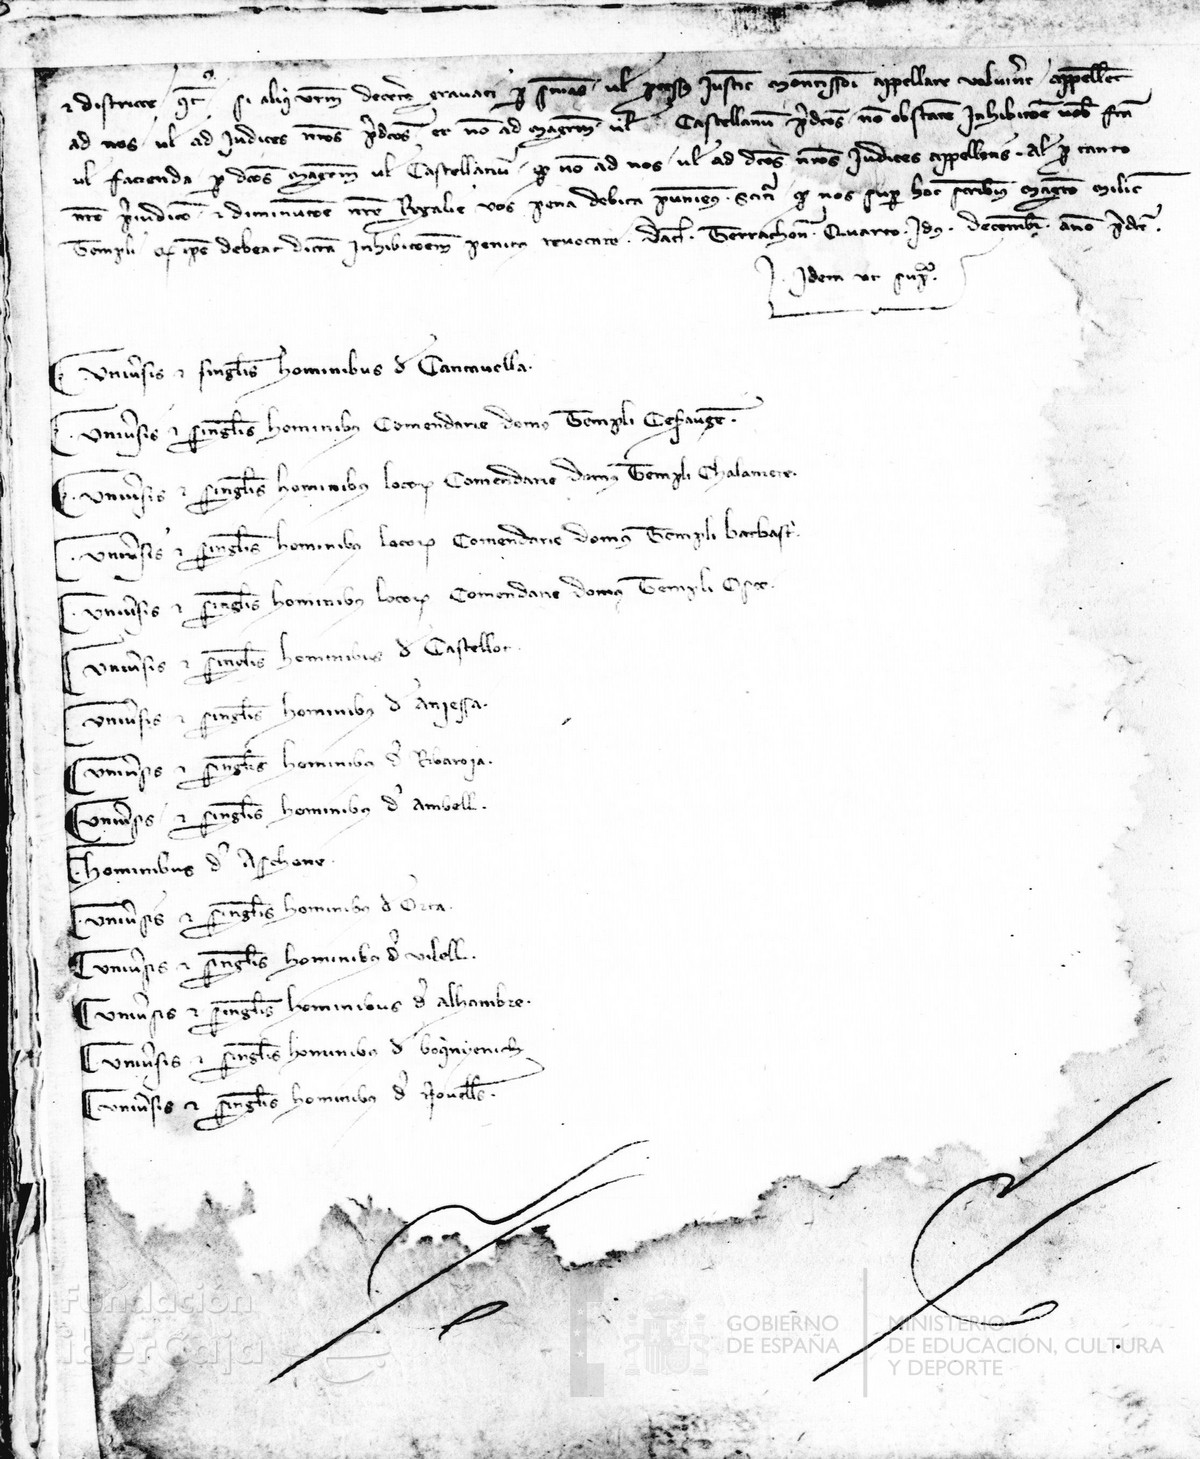 & districte qt si aliq̄ vrm̄ decetero gravati p sn̄iam vl pcessū Justic̄ Montissoni appellare voluīnt appellēt
ad nos vl ad Judices nr̄os p̄dcōs et nō ad magrm̄ vl Castellanū p̄dcōs nō obstante Inhibicōe vob̄ fca
vl facienda p dcōs magrm̄ vl Castellanū q nō ad nos vl ad dcōs nr̄os Judices appelletis. Al p tanto
nr̄o p̄iudicō & diminucōe nr̄e Regalie vos pena debita puniem9. Scit̄i q nos sup hoc scribim9 magro milic̄
Templi q ip̄e debeat dictā Inhibicōem penit9 revocare. Dat̄. Terrachon̄. Quarto. Id9. decembr̄. anō p̄dc̄o.
J. Idem ut sup̄ª.
Univ̄sis & singlis hominibus d̄ Cantavella.
Univ̄sis & singlis hominib9 Comendarie dom9 Templi Cesarauguste.
Univ̄sis & singlis hominib9 locor̄ Comendarie dom9 Templi Chalamere.
Univ̄sis & singlis hominib9 locor̄ Comendarie dom9 Templi barbast̄.
Univ̄sis & singlis hominib9 locor̄ Comendarie dom9 Templi Osce.
Univ̄sis & singlis hominibus d̄ Castellot.
Univ̄sis & singlis hominib9 d̄ Aniessa.
Univ̄sis & singlis hominib9 d̄ Ribaroja.
Univ̄sis & singlis hominib9 d̄ ambell.
hominibus d̄ Aschone.
Univ̄sis & singlis hominib9 d̄ Orta.
Univ̄sis & singlis hominib9 d̄ vilell.
Univ̄sis & singlis hominibus d̄ alhambre.
Univ̄sis & singlis hominib9 d̄ boquyenich
Univ̄sis & singlis hominib9 d̄ Novells.
Fundación
iberCaja
GOBIERNO
DE ESPAÑA
MINISTERIO
DE EDUCACIÓN, CULTURA
Y DEPORTE